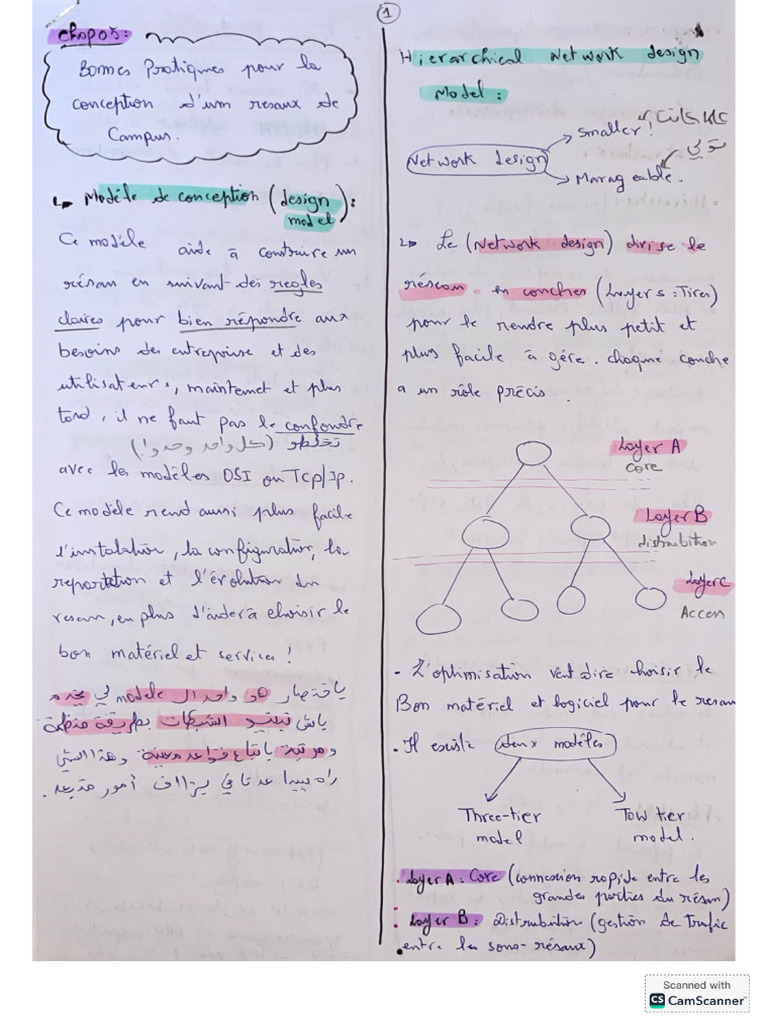 1
chap05:
Bonnes Pratiques pour la
conception d'um resaux de
Campus.
Modéle de conception (design
model):
Ce modéle aide à construire un
résau en suivant des regles
claires pour bien répondre aux
besoins des entreprise et des
utilisateurs, maintemet et plus
tard, il ne faut pas le confondre
تخلطو (كل واحد وحدو!)
avec les modéles OSI ou Tcp/Ip.
Ce modéle rend aussi plus facile
l'instalation, la configuration, la
reportation et l'évolution du
resau, en plus d'aider à choisir le
bon matériel et services!
باختصار هو واحد ال modéle لي
باش نبنيو الشبكات بطريقة منظمة
ومرتبة باتباع قواعد معينة وهذا الشيئ
راه أمور
Hierarchical Network design
Model:
Network design
Smaller!
Manageable.
2 Le (Network design) divise le
rescau en couches (Layers: Tires)
pour le rendre plus petit et
plus facile à gére. chaque couche
a un rôle précis.
Layer A
core
Layer B
distrubition
Layer C
Access
- L'optimisation veut dire choisir le
Bon matériel et logiciel pour le resau
. Il existe deux modéles
Three-tier
model
Tow tier
model.
. Layer A: Core (connexion rapide entre les
grandes parties du résau)
. Layer B: Distrubition (gestion de trafic
entre les sous-résaux)
Scanned with
CS CamScanner